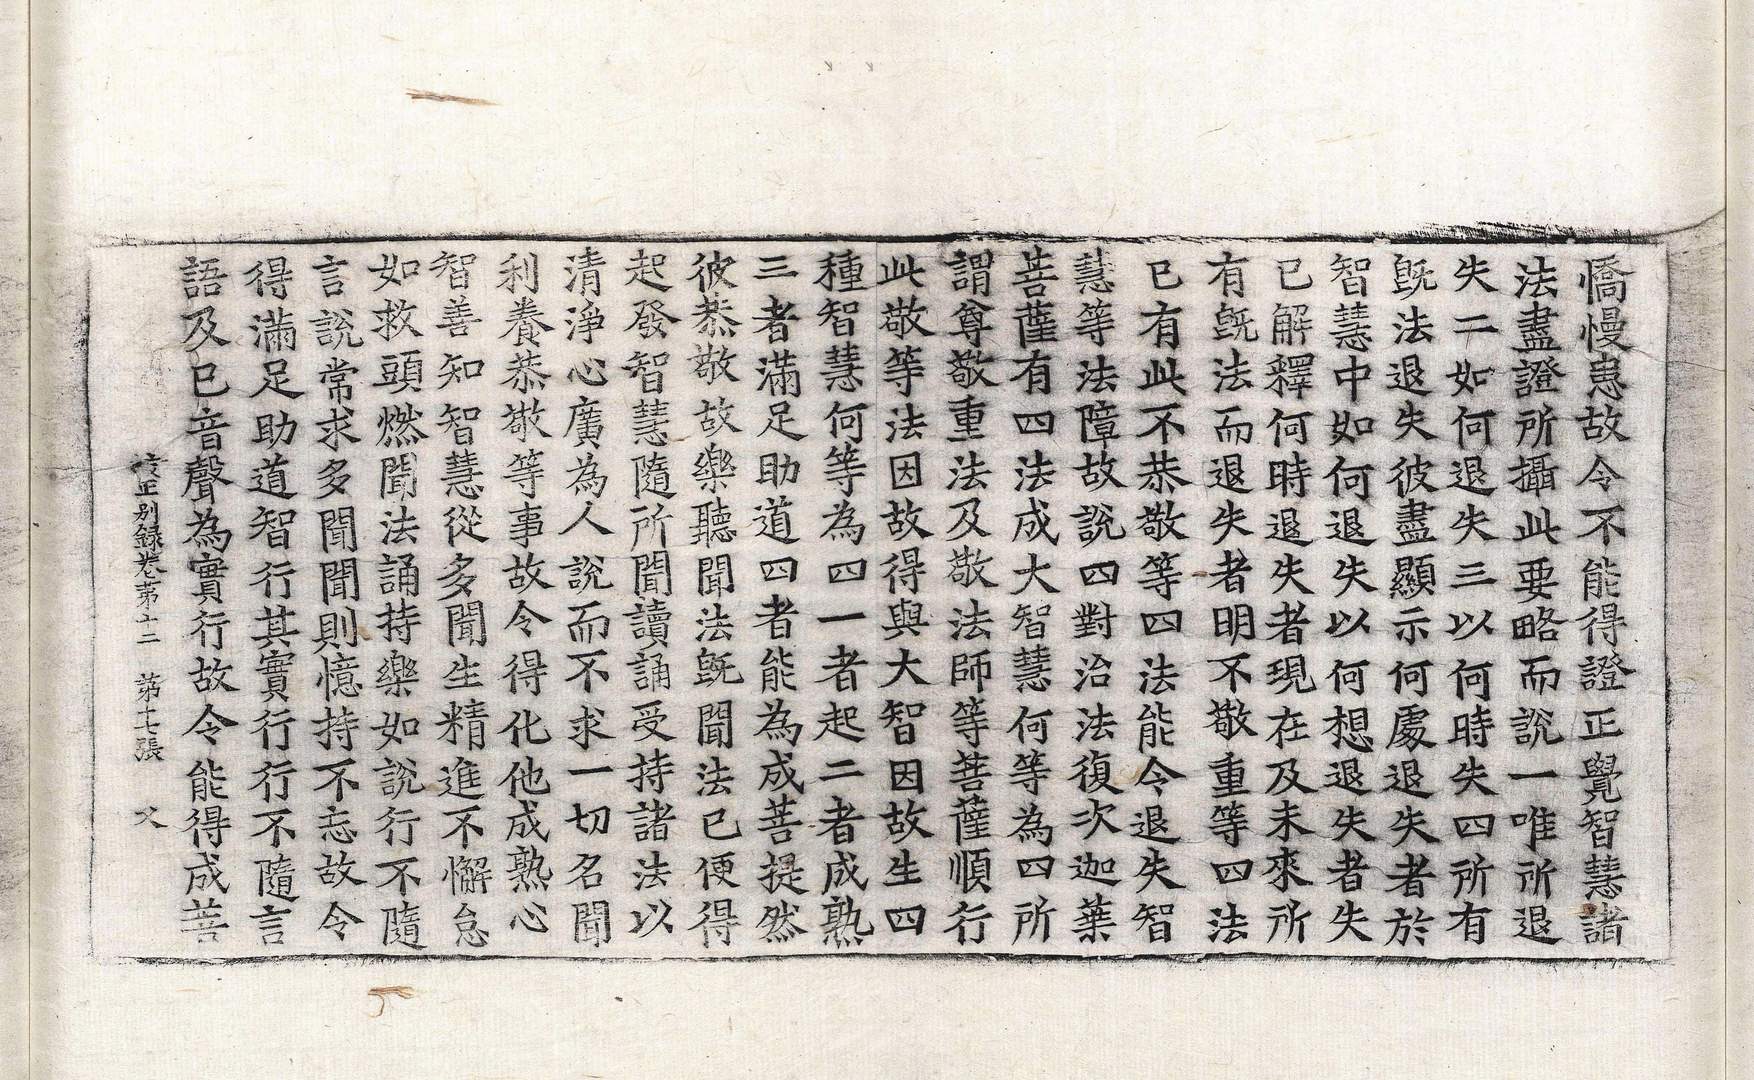 憍慢恚故令不能得證正覺智慧諸
法盡證所攝此要略而說一唯所退
失二如何退失三以何時失四所有
旣法退失彼盡顯示何處退失者於
智慧中如何退失以何想退失者失
已解釋何時退失者現在及未來所
有旣法而退失者明不敬重等四法
已有此不恭敬等四法能令退失智
慧等法障故說四對治法復次迦葉
菩薩有四法成大智慧何等為四所
謂尊敬重法及敬法師等菩薩順行
此敬等法因故得與大智因故生四
種智慧何等為四一者起二者成熟
三者滿足助道四者能為成菩提然
彼恭敬故樂聽聞法旣聞法已便得
起發智慧隨所聞讀誦受持諸法以
清淨心廣為人說而不求一切名聞
利養恭敬等事故令得化他成熟心
智善知智慧從多聞生精進不懈怠
如救頭燃聞法誦持樂如說行不隨
言說常求多聞聞則憶持不忘故令
得滿足助道智行其實行行不隨言
語及已音聲為實行故令能得成菩
校正別錄卷第十二 第十七張 父